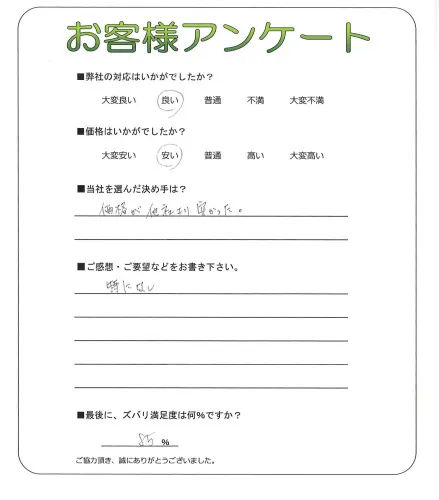 お客様アンケート
■弊社の対応はいかがでしたか?
大変良い 良い 普通 不満 大変不満
■価格はいかがでしたか?
大変安い 安い 普通 高い 大変高い
■当社を選んだ決め手は?
価格が他社より安かった。
■ご感想・ご要望などをお書き下さい。
特になし
■最後に、ズバリ満足度は何%ですか?
85 %
ご協力頂き、誠にありがとうございました。